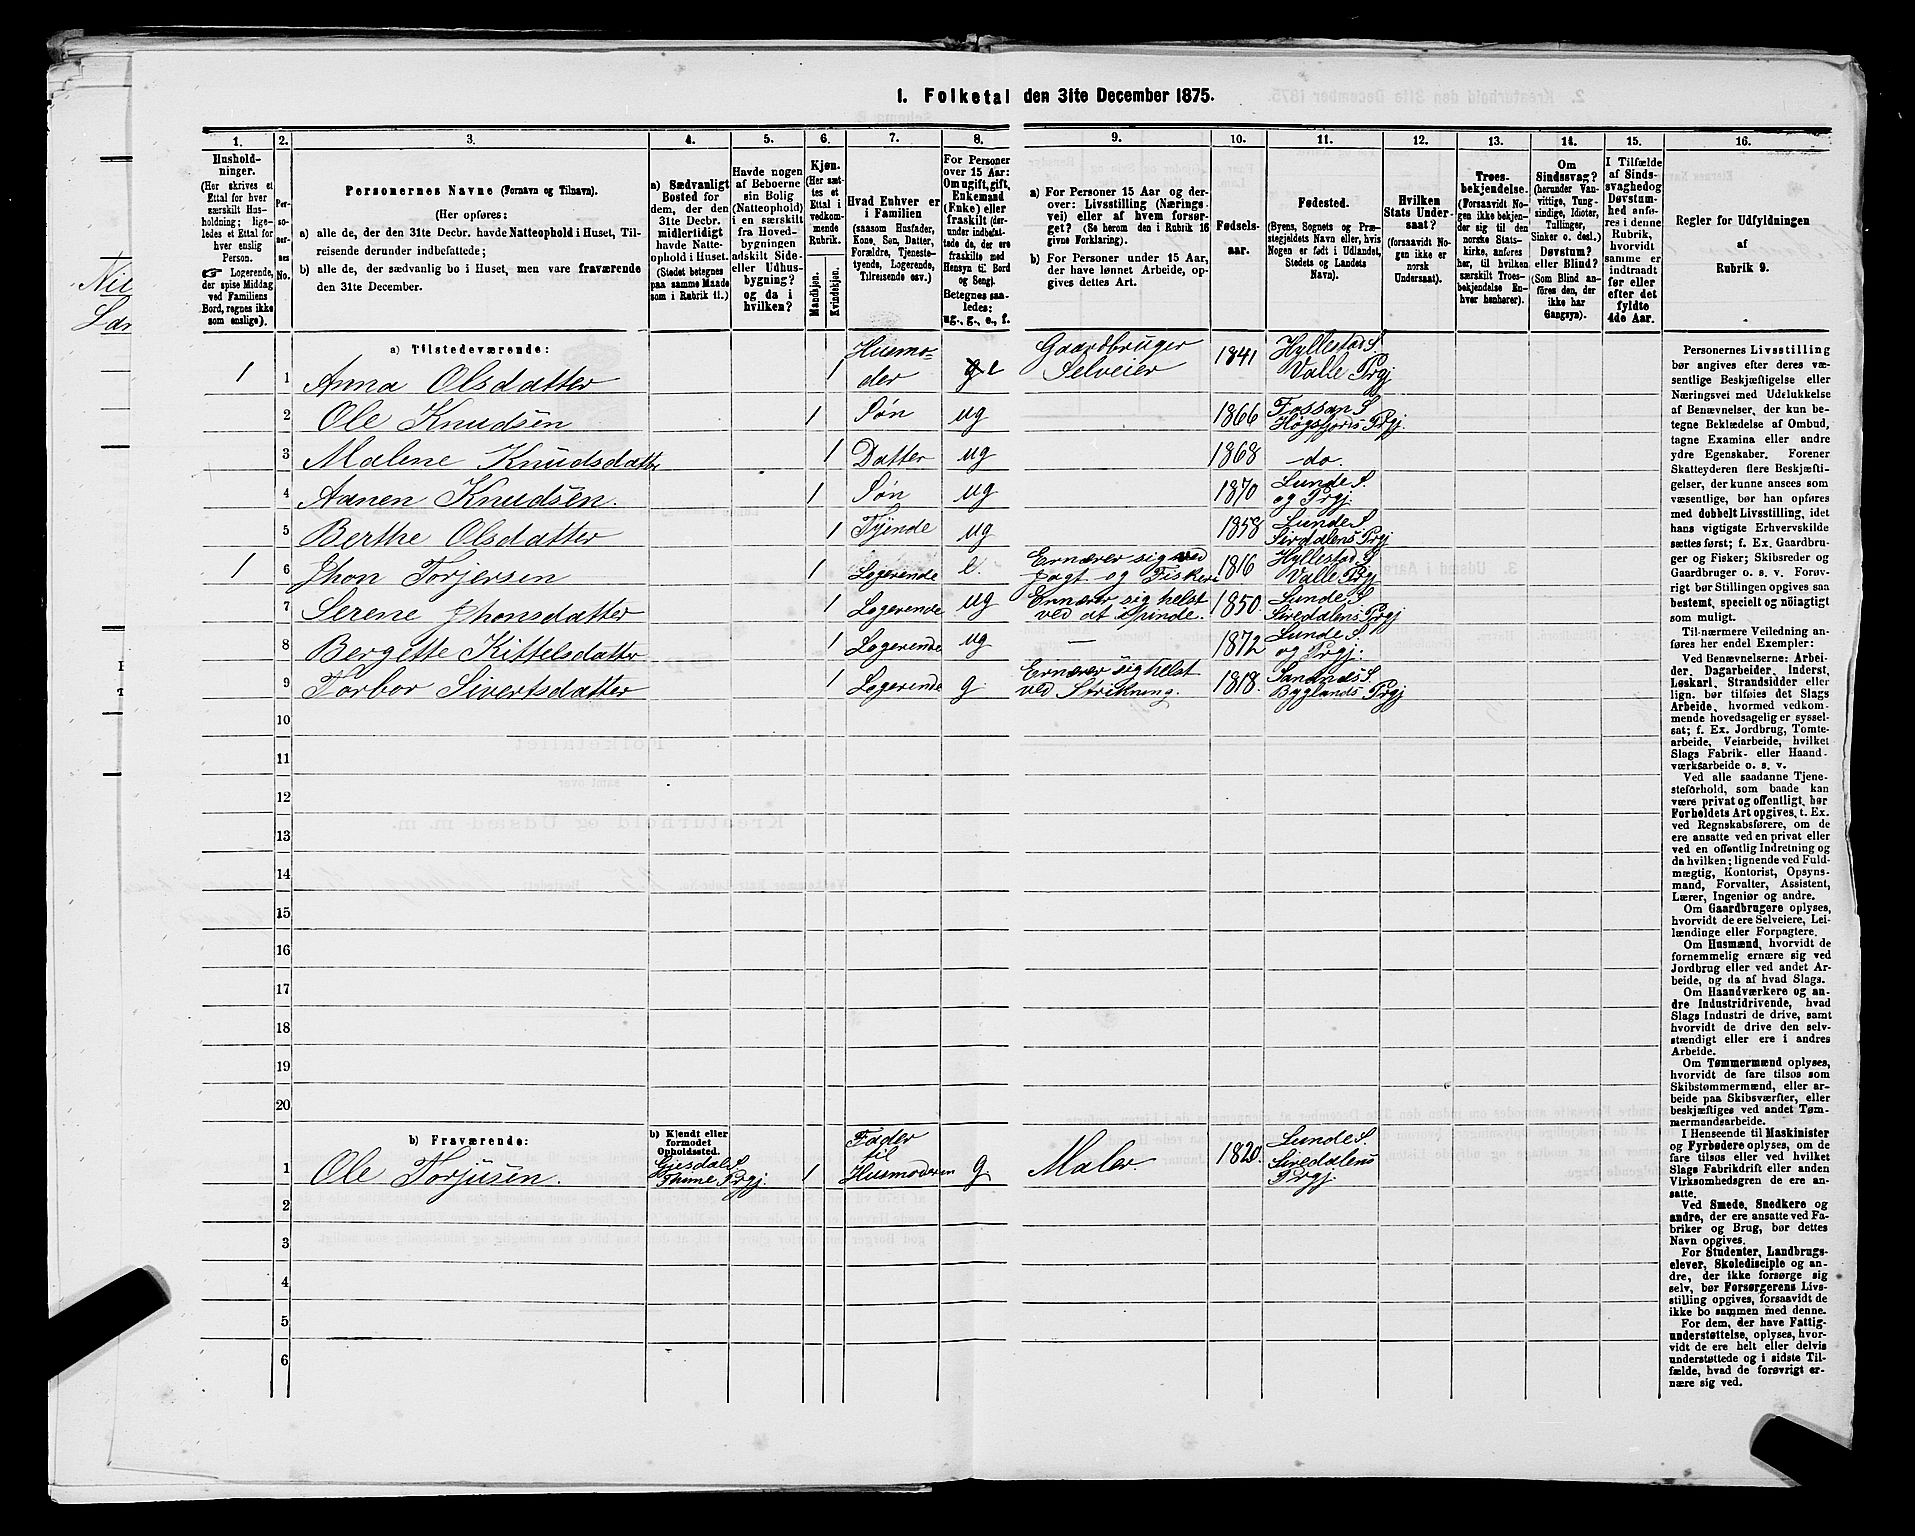 1. Folketal den 31te December 1875.
1.
Hushold-
ninger.
(Her skrives et
Ettal for hver
særskilt Hus-
holdning; lige-
ledes et Ettal for
hver enslig
Person.
☞ Logerende,
der spise Middag
ved Familiens
Bord, regnes ikke
som enslige).
2.
Per-
so-
ner-
nes
No.
3.
Personernes Navne (Fornavn og Tilnavn).
(Her opføres:
a) alle de, der den 31te Decbr. havde Natteophold i Huset, Til-
reisende derunder indbefattede;
b) alle de, der sædvanlig bo i Huset, men vare fraværende
den 31te December.
4.
a) Sædvanligt
Bosted for
dem, der den
31te Decbr.
midlertidigt
havde Natte-
ophold i Huset.
(Stedet betegnes
paa samme Maade
som i Rubrik 11.)
5.
Havde nogen
af Beboerne
sin Bolig
(Natteophold)
i en særskilt
fra Hoved-
bygningen
adskilt Side-
eller Udhus-
bygning?
og da i
hvilken?
6.
Kjøn.
(Her sæt-
tes et
Ettal i
vedkom-
mende
Rubrik.
Mandkjøn.
Kvindekjøn.
7.
Hvad Enhver er
i Familien
(saasom Husfader,
Kone, Søn, Datter,
Forældre, Tjeneste-
tyende, Logerende,
Tilreisende osv.)
8.
For Personer
over 15 Aar:
Om ugift, gift,
Enkemand
(Enke) eller
fraskilt (der-
under indbefat-
tede de, der ere
fraskilte med
Hensyn til Bord
og Seng).
Betegnes saa-
ledes:
ug., g., e., f.
9.
a) For Personer 15 Aar og der-
over: Livsstilling (Nærings-
vei) eller af hvem forsør-
get? (Se herom den i Rubrik 16
givne Forklaring).
b) For Personer under 15 Aar,
der have lønnet Arbeide, op-
gives dettes Art.
10.
Fødsels-
aar.
11.
Fødested.
(Byens, Sognets og Præ-
stegjeldets Navn eller, hvis
Nogen er født i Udlandet,
Stedets og Landets
Navn).
12.
Hvilken
Stats Under-
saat?
(forsaavidt No-
gen ikke er
norsk
Undersaat).
13.
Troes-
bekjendelse.
(Forsaavidt No-
gen ikke bekjen-
der sig til den
norske Stats-
kirke, anføres
her, til hvilken
særskilt Troes-
bekjendelse En-
hver henhører).
14.
Om
Sindssvag?
(herunder Van-
vittige, Tung-
sindige, Idioter,
Tullinger,
Sinker o. desl.)
Døvstum?
eller Blind?
(Som Blind an-
føres den, der
ikke har
Gangsyn).
15.
I Tilfælde
af Sinds-
svaghed og
Døvstum-
hed anfø-
res i denne
Rubrik,
hvorvidt
samme er
indtraadt
før eller
efter det
fyldte
4de Aar.
16.
Regler for Udfyldningen
af
Rubrik 9.
a) Tilstedeværende:
1 1 Anna Olsdatter 1 Husmo-
der g e Gaardbruger
Selveier 1841 Hyllestad S
Valle Prgj
2 Ole Knudsen 1 Søn ug 1866 Fossan S
Høgsfjords Prgj.
3 Malene Knudsdatter 1 Datter ug 1868 -do.
4 Aanen Knudsen. 1 Søn ug 1870 Lunde S.
og Prgj.
5 Berthe Olsdatter 1 Tyende ug 1858 Lunde S.
Sirdalens Prgj
1 6 Jhon Torjersen 1 Logerende e. Ernærer sig ved
Jagt og Fiskeri 1816 Hyllestad S
Valle Prgj
7 Serene Jhonsdatter 1 Logerende ug Ernærer sig helst
ved at Spinde. 1850. Lunde S
Siredalens Prgj
8 Bergette Kittelsdatter 1 Logerende ug — 1872 Lunde S.
og Prgj.
9 Torbor Sivertsdatter 1 Logerende g. Ernærer sig helst
ved Strikning. 1818. Sandnæs S.
Byglands Prgj
10
11
12
13
14
15
16
17
18
19
20
b) Fraværende:
b) Kjendt eller
formodet
Opholdssted.
1 Ole Torjusen. Gjesdal S.
Thime Prgj. 1 Fader
til
Husmoderen g Maler 1820. Lunde S.
Siredalens
Prgj.
2
3
4
5
6
Personernes Livsstilling
bør angives efter deres væ-
sentlige Beskjæftigelse eller
Næringsvei med Udelukkelse
af Benævnelser, der kun be-
tegne Beklædelse af Ombud,
tagne Examina eller andre
ydre Egenskaber. Forener
Skatteyderen flere Beskjæfti-
gelser, der kunne ansees som
væsentlige, bør han opføres
med dobbelt Livsstilling, idet
hans vigtigste Erhvervskilde
sættes først; f. Ex. Gaardbru-
ger og Fisker; Skibsreder og
Gaardbruger o. s. v. Forøv-
rigt bør Stillingen opgives saa
bestemt, specielt og nöiagtigt
som muligt.
Til nærmere Veiledning an-
føres her endel Exempler:
Ved Benævnelserne: Arbei-
der, Dagarbeider, Inderst,
Løskarl, Strandsidder eller
lign. bør tilføies det Slags
Arbeide, hvormed vedkom-
mende hovedsagelig er syssel-
sat; f. Ex. Jordbrug, Tomte-
arbeide, Veiarbeide, hvilket
Slags Fabrik- eller Haand-
værksarbeide o. s. v.
Ved alle saadanne Tjene-
steforhold, som baade kan
være privat og offentligt, bør
Forholdets Art opgives, t. Ex.
ved Regnskabsførere, om de
ere ansatte ved en privat eller
ved en offentlig Indretning og
da hvilken; lignende ved Fuld-
mægtig, Kontorist, Opsyns-
mand, Forvalter, Assistent,
Lærer, Ingeniør og andre.
Om Gaardbrugere oplyses,
hvorvidt de ere Selveiere, Lei-
lændinge eller Forpagtere.
Om Husmænd, hvorvidt de
fornemmelig ernære sig ved
Jordbrug eller ved andet Ar-
beide, og da af hvad Slags.
Om Haandværkere og an-
dre Industridrivende, hvad
Slags Industri de drive, samt
hvorvidt de drive den selv-
stændigt eller ere i andres
Arbeide.
Om Tømmermænd oplyses,
hvorvidt de fare tilsøs som
Skibstømmermænd, eller ar-
beide paa Skibsværfter, eller
beskjæftiges ved andet Tøm-
mermandsarbeide.
I Henseende til Maskinister
og Fyrbødere oplyses, om de
fare tilsøs eller ved hvilket
Slags Fabrikdrift eller anden
Virksomhedsgren de ere an-
satte.
Ved Smede, Snedkere og
andre, der ere ansatte ved Fa-
briker og Brug, bør dettes
Navn opgives.
For Studenter, Landbrugs-
elever, Skoledisciple og an-
dre, der ikke forsørge sig
selv, bør Forsørgerens Livs-
stilling opgives, forsaavidt de
ikke bo sammen med denne.
For dem, der have Fattig-
understøttelse, oplyses, hvor-
vidt de ere helt eller delvis
understøttede og i sidste Til-
fælde, hvad de forøvrigt er-
nære sig ved.